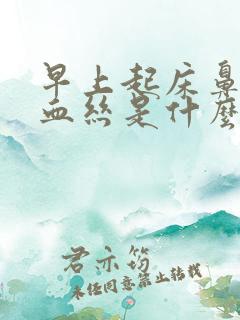 早上起床鼻
血絲是什麼
君亦筠
未经同意禁止转载